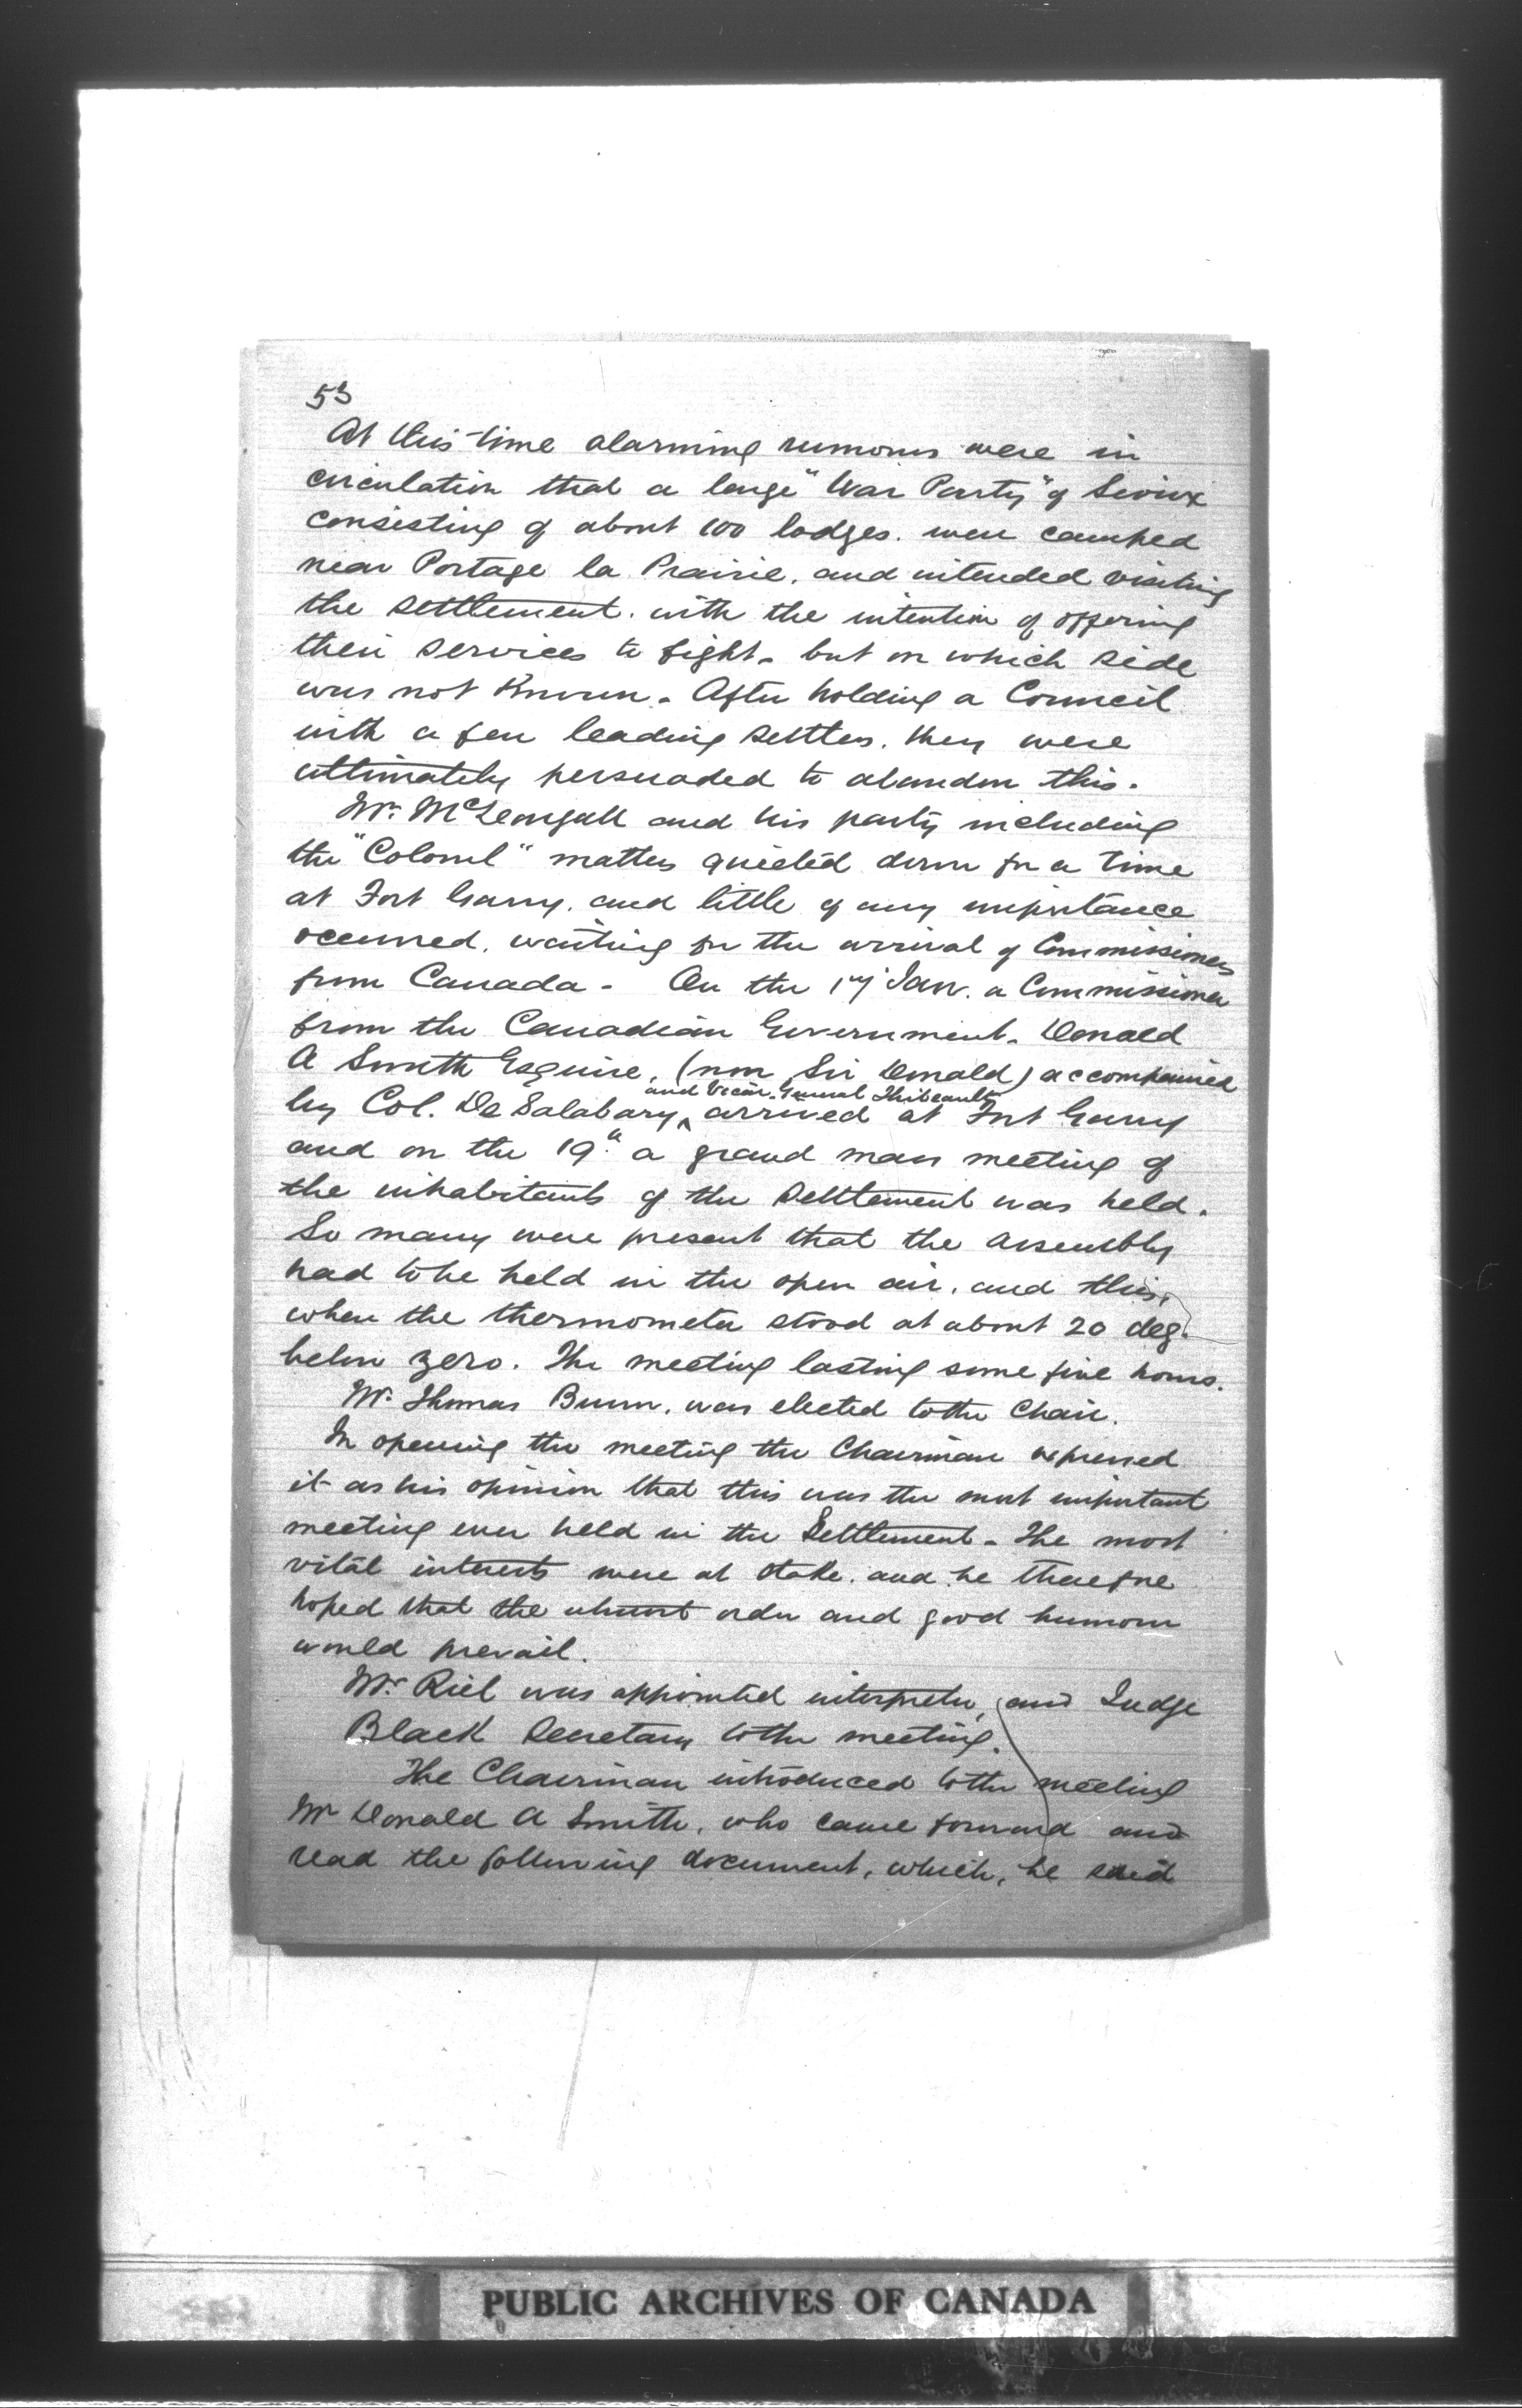 53
At this time alarming rumours were in
circulation that a large "War Party" of Sioux
consisting of about 100 lodges. were camped
near Portage la Prairie. and intended visiting
the settlement. with the intention of offering
their services to fight. but on which side
was not known. After holding a Council
with a few leading settlers. they were
ultimately persuaded to abandon this.
Mr. McDougall and his party including
the "Colonel" matters quieted down for a time
at Fort Garry. and little of any importance
occurred. waiting for the arrival of Commissioners
from Canada - On the 17 Jan. a Commissioner
from the Canadian Government. Donald
A Smith Esquire, (now Sir Donald) accompanied
and Vicar. General Thibeault
by Col. De Salabary ^ arrived at Fort Garry
and on the 19th a grand mass meeting of
the inhabitants of the Settlement was held.
So many were present that the assembly
had to be held in the open air. and this,
when the thermometer stood at about 20 deg.
below zero. The meeting lasting some five hours.
Mr. Thomas Bunn. was elected to the Chair.
In opening the meeting the Chairman expressed
it as his opinion that this was the most important
meeting ever held in the Settlement - The most
vital interests were at stake. and he therefore
hoped that the utmost order and good humour
would prevail.
Mr. Riel was appointed interpreter, and Judge
Black Secretary to the meeting.
The Chairman introduced to the meeting
Mr Donald A Smith, who came forward and
read the following document, which, he said
PUBLIC ARCHIVES OF CANADA